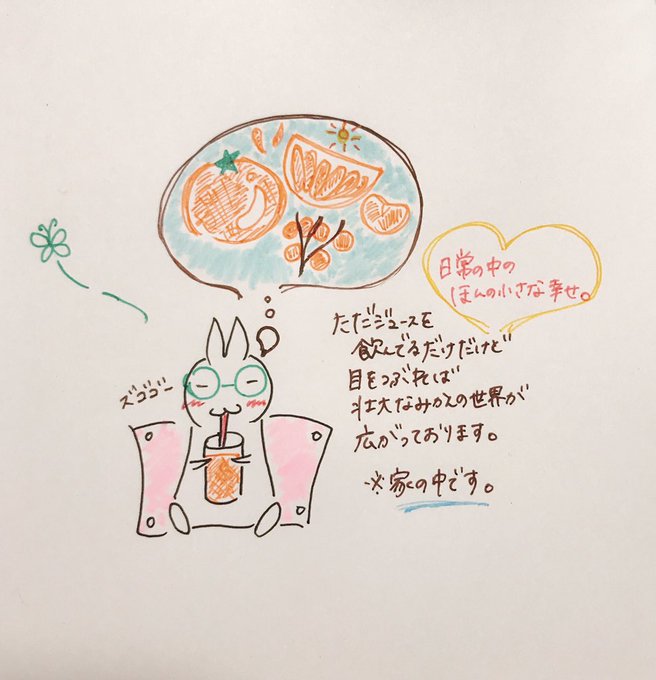 日常の中の
ほんの小さな幸せ。
ただジュースを
飲んでるだけだけど
目をつぶれば
壮大なみかんの世界が
広がっております。
ズゴゴー
※家の中です。